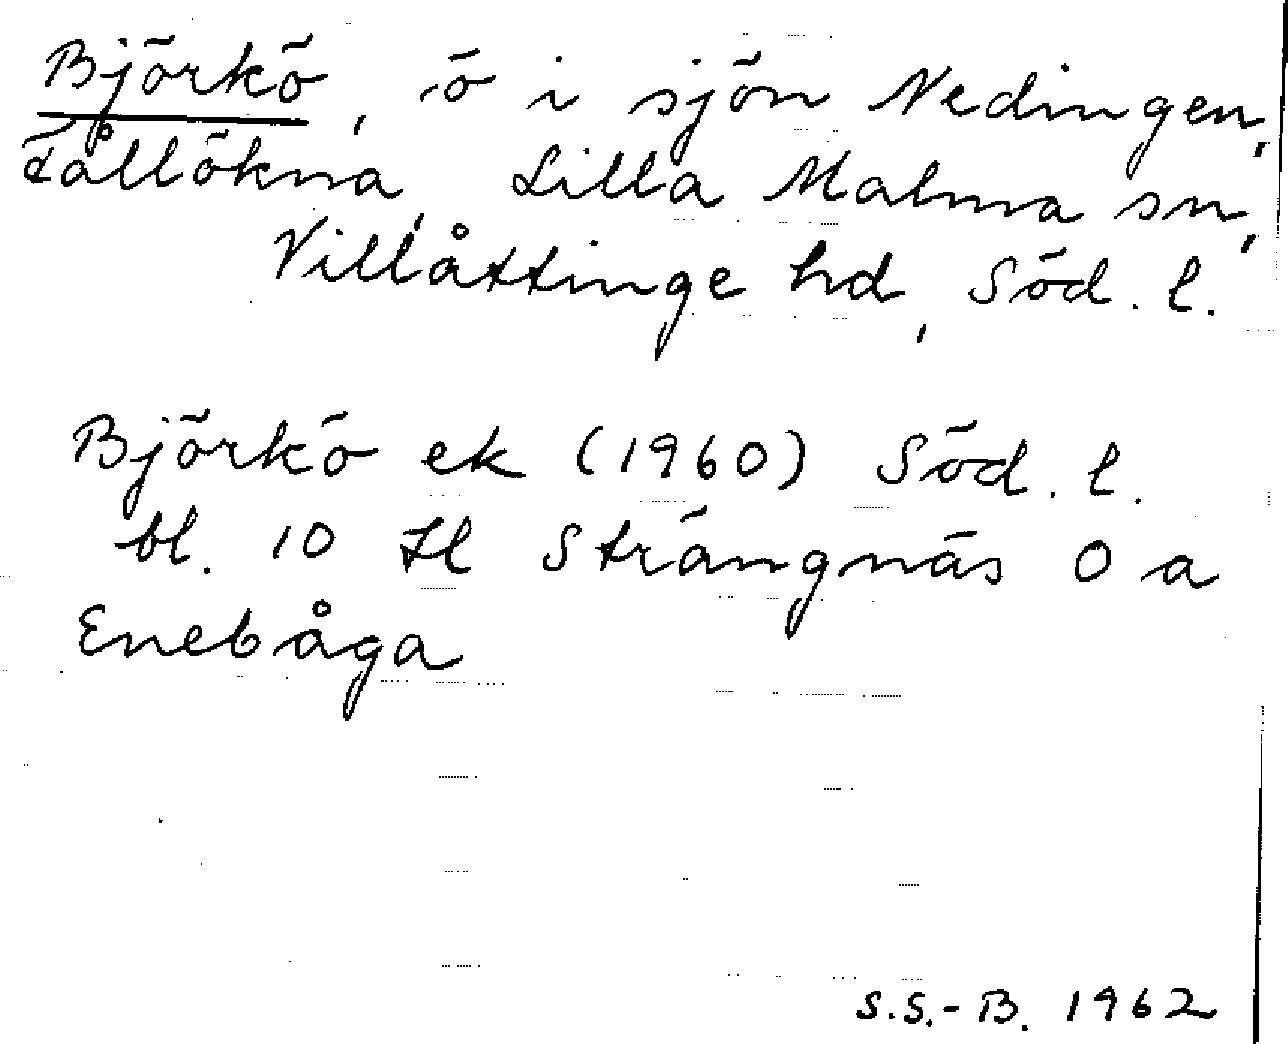 Björkö, ö i sjön Nedingen,
Tållökna, Lilla Malma sn,
Villåttinge hd, Söd. l.
Björkö ek (1960) Söd. l.
bl. 10 Hl Strängnäs O a
Enebåga
S.S.-B. 1962